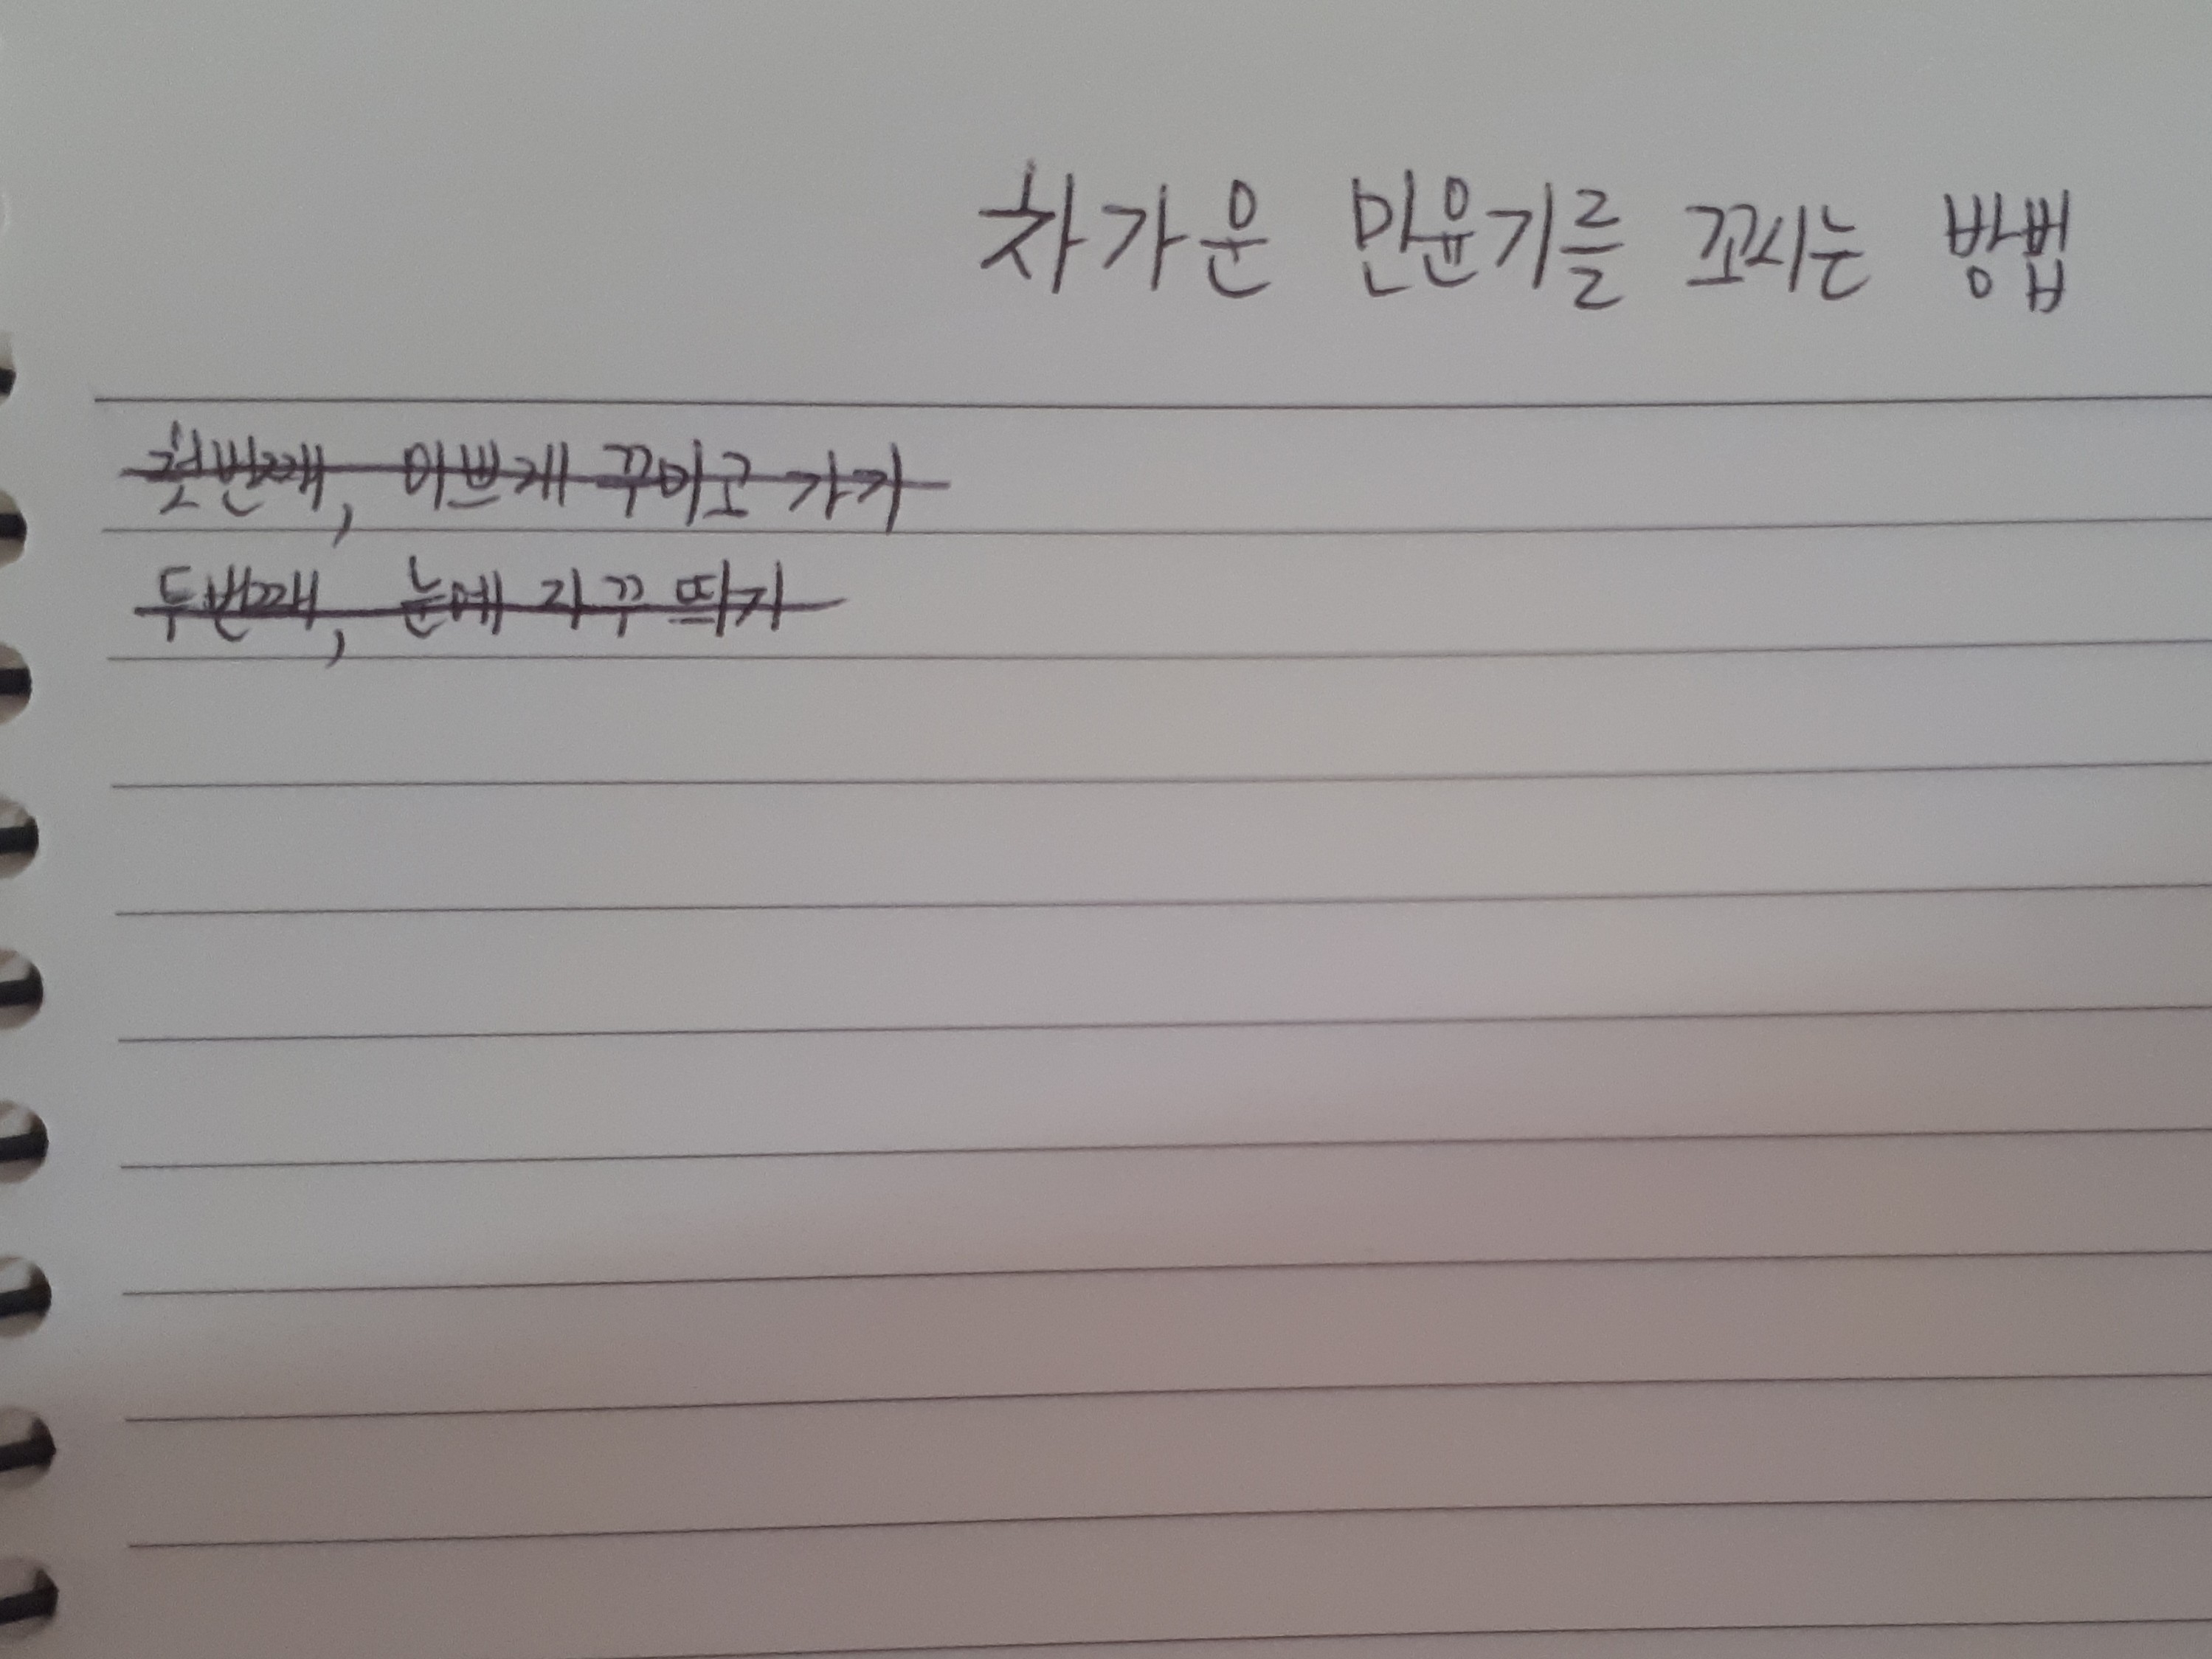 차가운 민윤기를 꼬시는 방법
첫번째, 이쁘게 꾸미고 가기
두번째, 눈에 자꾸 띄기